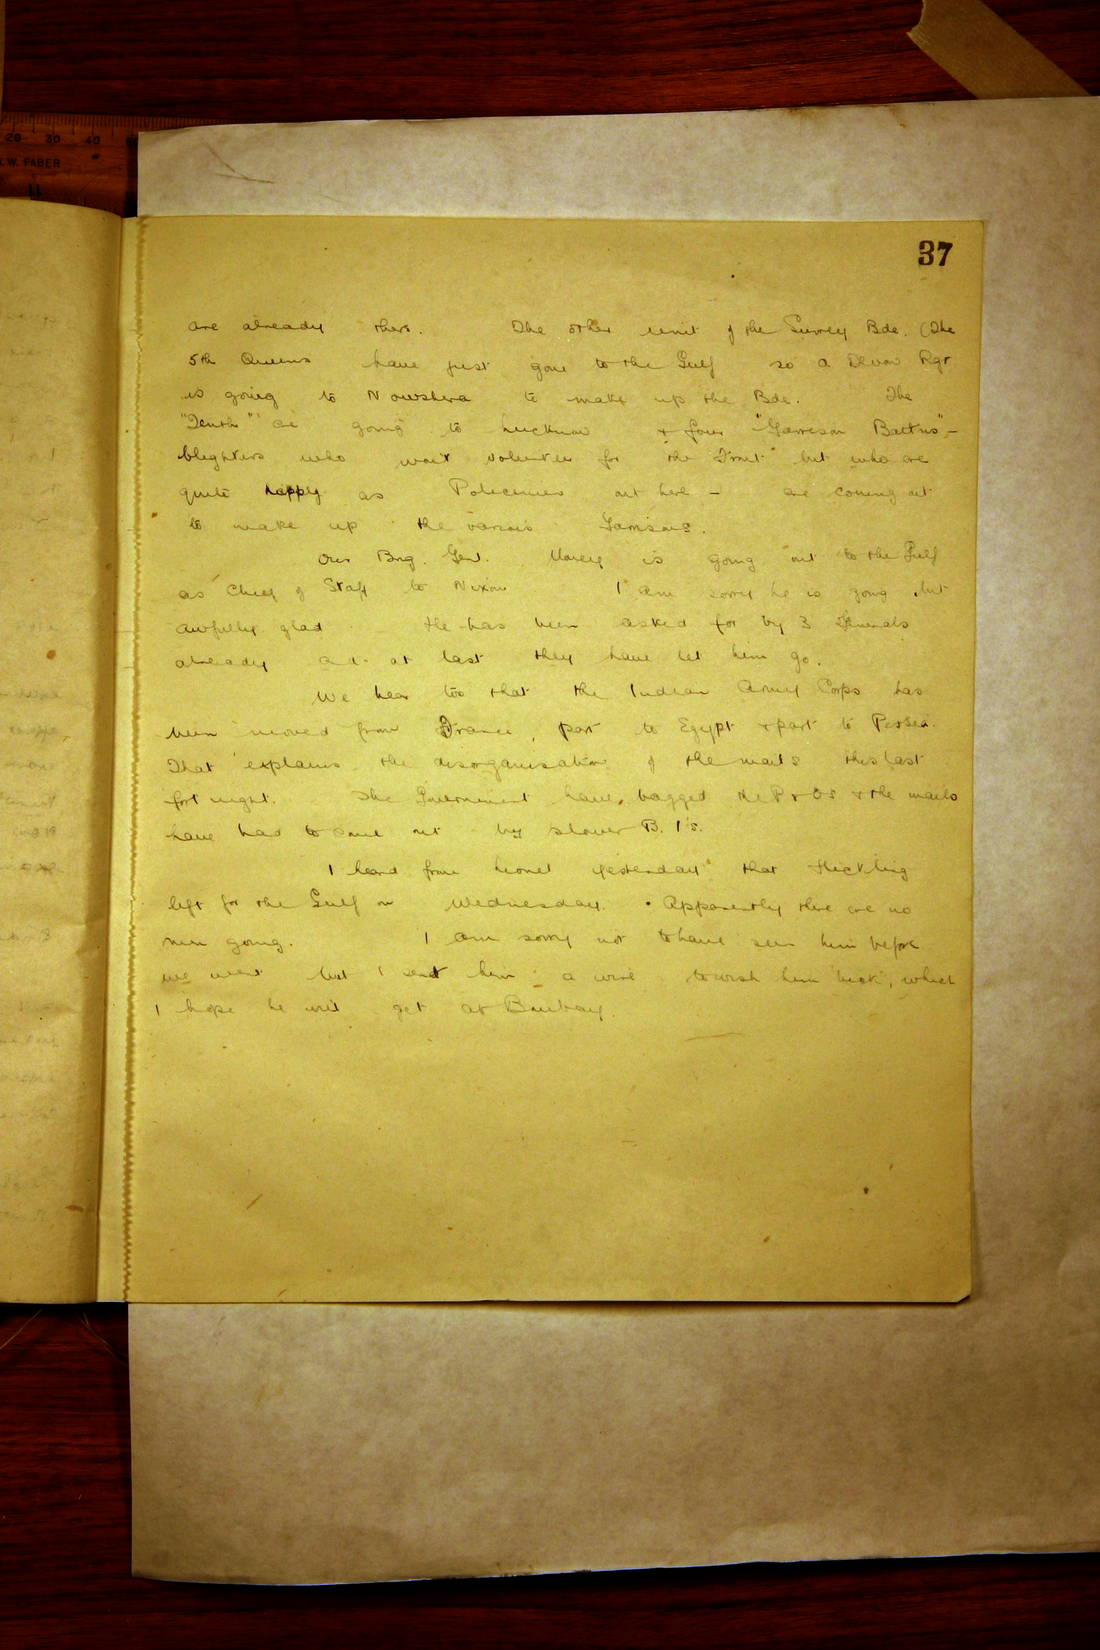 37
are already there. The other unit of the Surrey Bde. (The
5th Queens have just gone to the Gulf so a Devon Rgt
is going to Nowshera to make up the Bde. The
"Tenth" are going to Lucknow & four "Garrison Battns" –
blighters who won't volunteer for "the Front" but who are
quite happy as Policemen out here – are coming out
to make up the various Garrisons.
Our Brig. Genl. is going out to the Gulf
as Chief of Staff to Nixon I am sorry he is going but
awfully glad He has been asked for by 3 Generals
already and at last they have let him go.
We hear too that the Indian Army Corps has
been moved from France, part to Egypt & part to Persia.
That explains the disorganisation of the mails this last
fortnight. The Government have bagged the P & Os & the mails
have had to come out by slower B. I's.
I heard from Lionel yesterday that Hickling
left for the Gulf on Wednesday. Apparently there are no
men going. I am sorry not to have seen him before
we went but I sent him a wire to wish him luck, which
I hope he will get at Bombay.
20 30 40
W. FABER